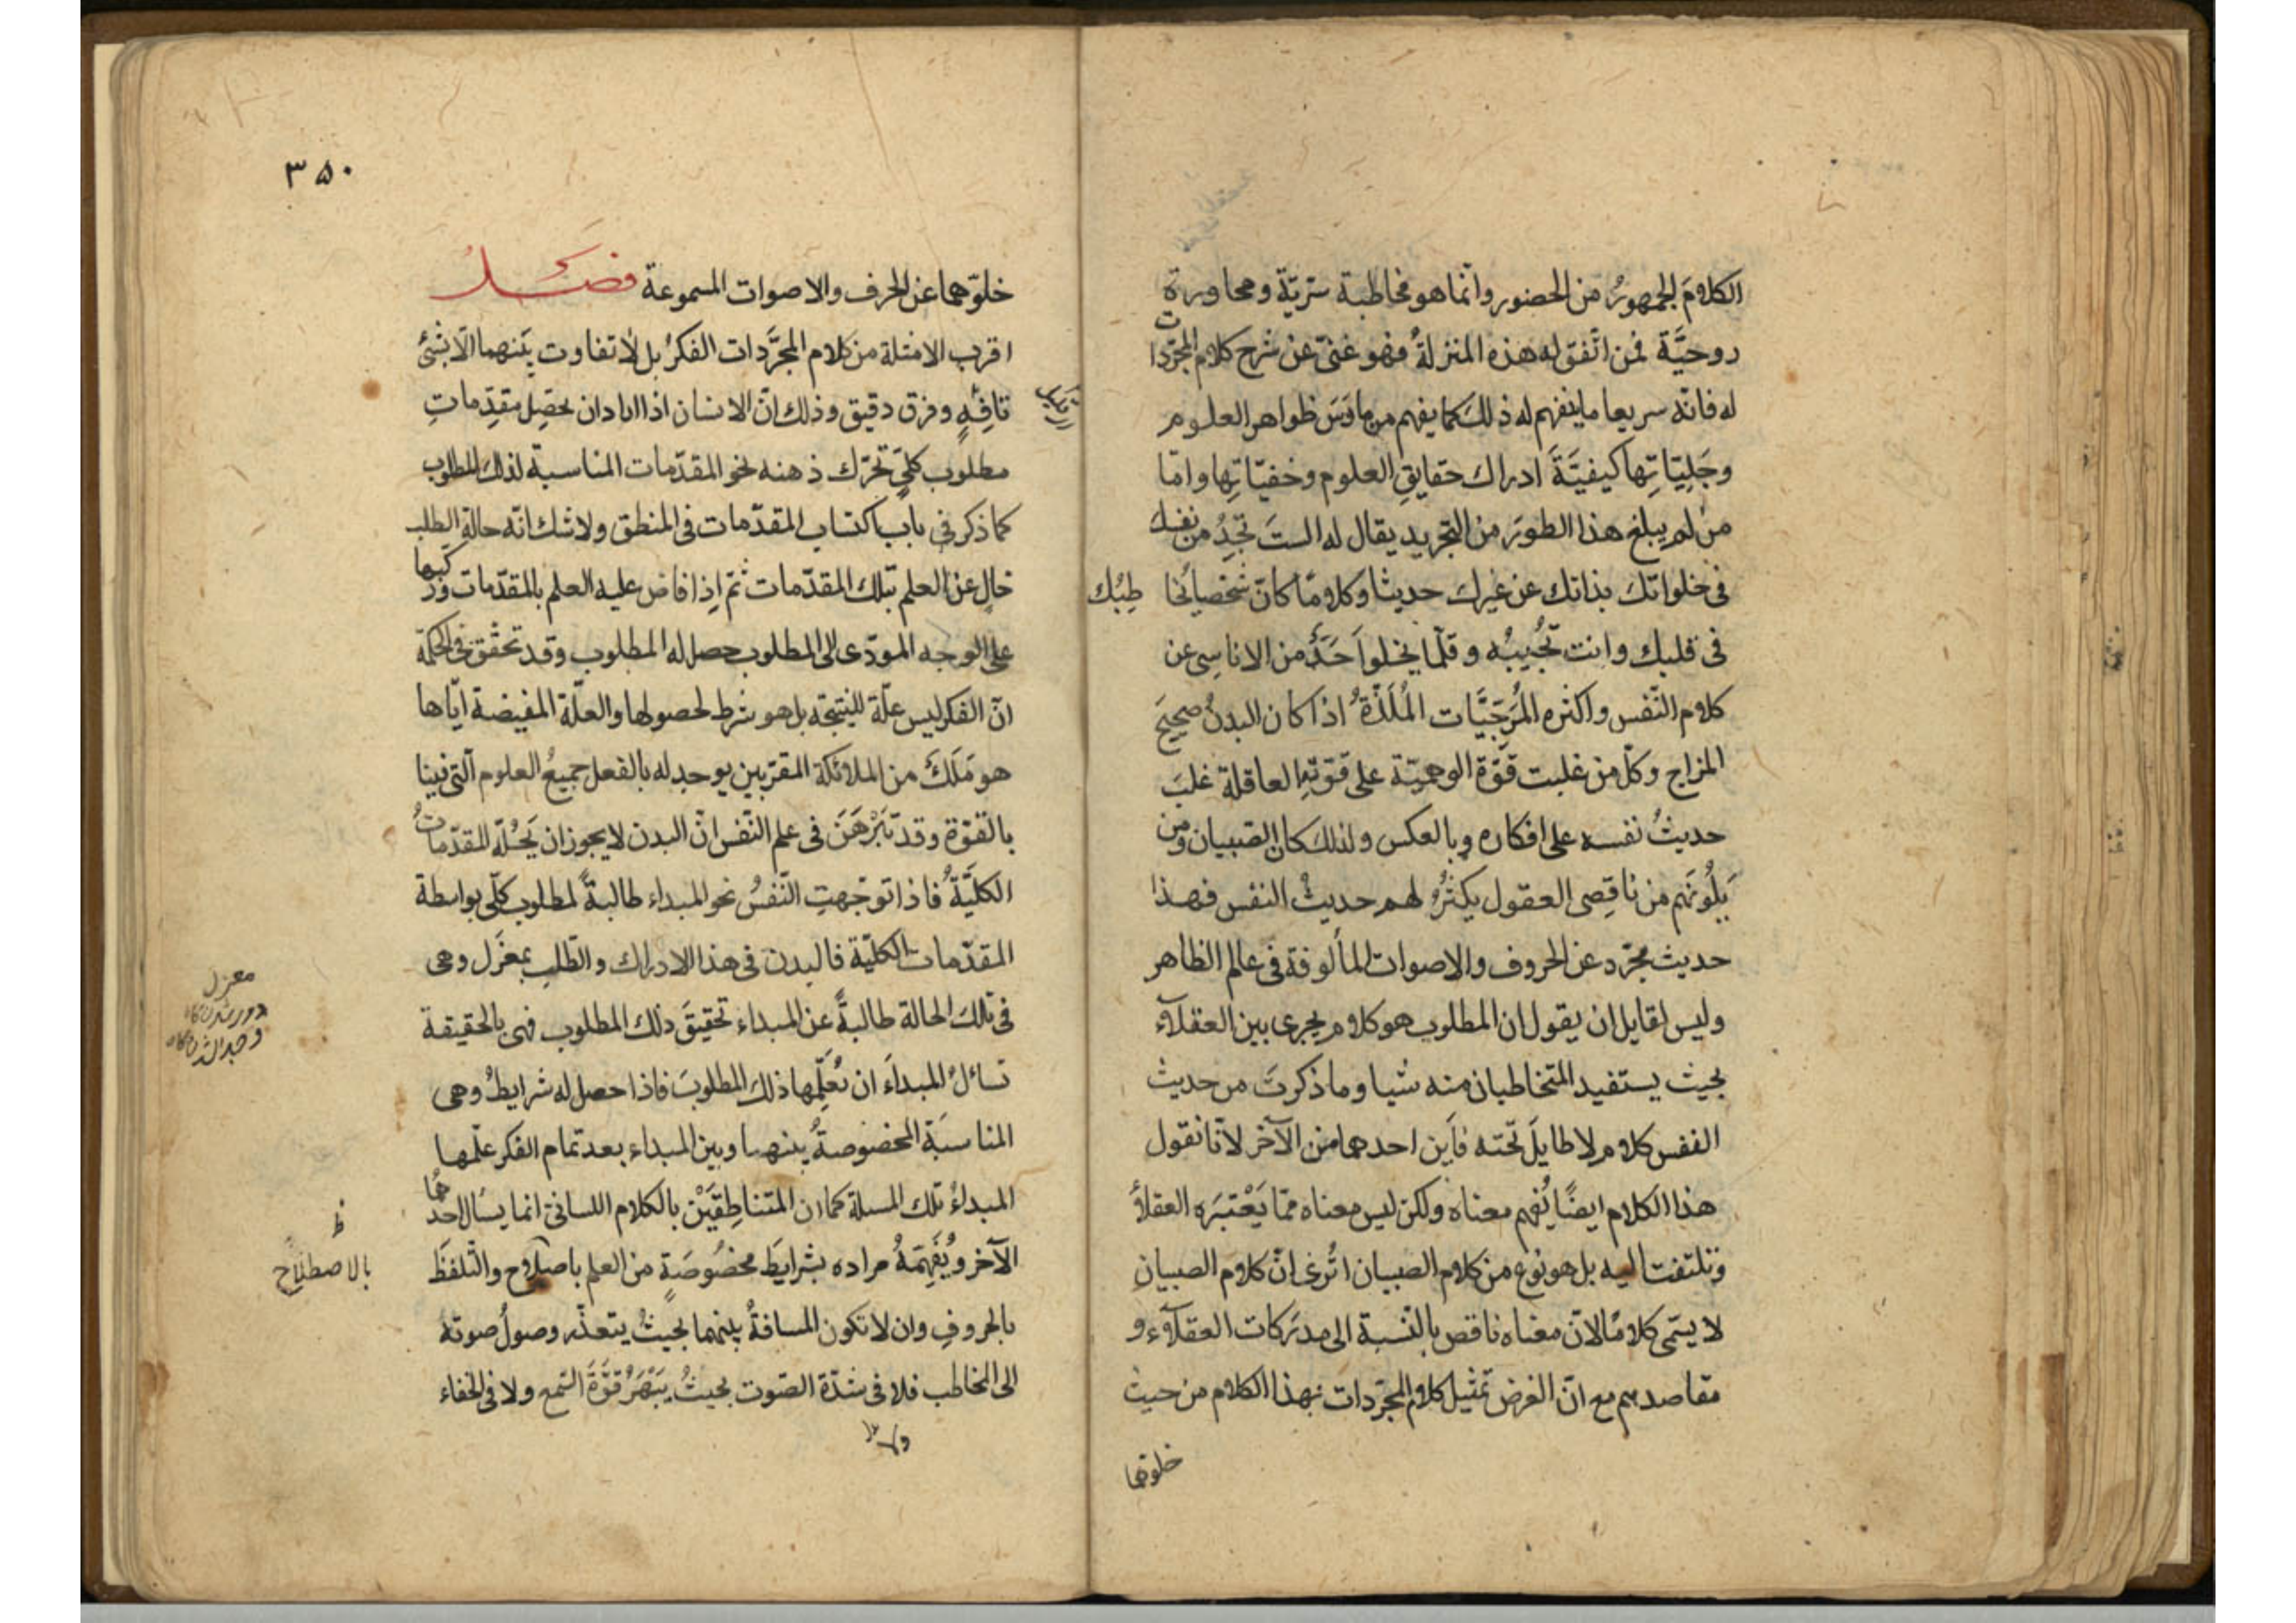 الكلامَ الجمهورُ من الحضور وانما هو مخاطبة سّريّة ومحاورة
روحيَّة فمن اتّفق له هذه المنزلةُ فهو غنىّ عن شرح كلام المجرّدات
له فانّه سريعا ما ينفهم له ذلك كما يفهم من مارَسَ ظواهر العلوم
وجَلِيّاتِها كيفيَّةَ ادراك حقايقِ العلوم وخفيّاتِها وامّا
من لم يبلغ هذا الطورَ من التجريد يقال له الستَ تجِدُ من نفسك
فى خلواتك بذاتك عن غيرك حديثا وكلامًا كانّ شخصيا يخاطبك
فى قلبك وانت تُجيبُه وقلّما يخلوا حَدٌ من الاناسِى عن
كلام النّفس واكثره المُرَجَّيات المُلَذّةُ اذا كان البدنُ صحيحَ
المزاج وكلّ من غلبت قوّة الوهميّة على قوّتهِ العاقلة غلبَ
حديثُ نفسه على افكاره وبالعكس ولذلك كان الصبيان ومن
يَلُونَهم من ناقِصى العقول يكثرُ لهم حديثُ النفس فهذا
حديث مجرّد عن الحروف والاصوات المألوفة فى عالم الظاهر
وليس لقايل ان يقول ان المطلوب هو كلام يجرى بين العقلاء
بحيث يستفيد المتخاطبان منه شيا وما ذكرتَ من حديث
النفس كلام لا طايلَ تحته فاَين احدهما من الآخر لانّا نقول
هذا الكلام ايضًا يُفهم معناه ولكن ليس معناه ممّا يَعْتبَره العقلاءُ
وتلتفت اليه بل هو نوع من كلام الصبيان اتُرى انّ كلام الصبيان
لا يسمّى كلامًا لانّ معناه ناقص بالنّسبة الى مدرَكات العقلاء و
مقاصدهم مع انّ الغرض تمثيل كلام المجرّدات بهذا الكلام من حيث
خلوّهما
٣٥٠
خلوّهما عن الحرف والاصوات المسموعة فصل
اقرب الامثلة من كلام المجرَّدات الفكرُ بل لا تفاوت بينهما الّا بشئ
تافِهٍ وفرق دقيق وذلك انّ الانسان اذا اراد ان يحصِّل مقدِّماتِ
مطلوب كلىّ تحرّك ذهنه نحو المقدّمات المناسبة لذلك المطلوب
كما ذكر فى باب اكتساب المقدّمات فى المنطق ولا شك انّه حالة الطلب
خالٍ عن العلم بتلك المقدّمات ثمّ اِذا فاض عليه العلم بالمقدّمات ورَكَّبها
على الوجه المودّى الى المطلوب حصل له المطلوب وقد تحقّق فى الحكمة
انّ الفكر ليس علّة للنتيجة بل هو شرط لحصولها والعلّة المفيضة ايّاها
هو مَلَكٌ من الملائكة المقرّبين يوجد له بالفعل جميعُ العلوم التى فينا
بالقوّة وقد تَبَرْهَنَ فى علم النّفس انّ البدن لا يجوز ان يَحُلّه المقدّماتُ
الكليَّةُ فاذا توجّهتِ النّفسُ نحو المبداء طالبةً لمطلوب كلّى بواسطة
المقدّمات الكليّة فالبدن فى هذا الادراك والطّلبِ بمعزَل وهى
فى تلك الحالة طالبةً عن المبداء تحقيقَ ذلك المطلوب فهى بالحقيقة
تسائلُ المبداَء ان يُعَلِّمها ذلك المطلوبَ فاذا حصل له شرايطُ وهى
المناسبَة المخصوصةُ بينهما وبين المبداء بعد تمام الفكر علّمها
المبداءُ تلك المسئلة كما ان المتناطِقَيْن بالكلام اللسانى انما يسأل احدهُما
الآخر ويُفَهِّمهُ مراده بشرايَط مخصُوصَةٍ من العلم باصلاح والتلفظَ
بالحروفِ وان لا تكون المسافةُ بينهما بحيثُ يتعذّر وصولُ صوته
الى المخاطب فلا فى شدّة الصّوت بحيثُ يَبْهَرُ قوَّةَ السّمع ولا فى الخفاء
معزل
ظ
بالاصطلاح